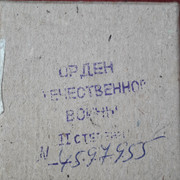 ОРДЕН
ОТЕЧЕСТВЕННОЙ
ВОЙНЫ
II СТЕПЕНИ
N-4597955